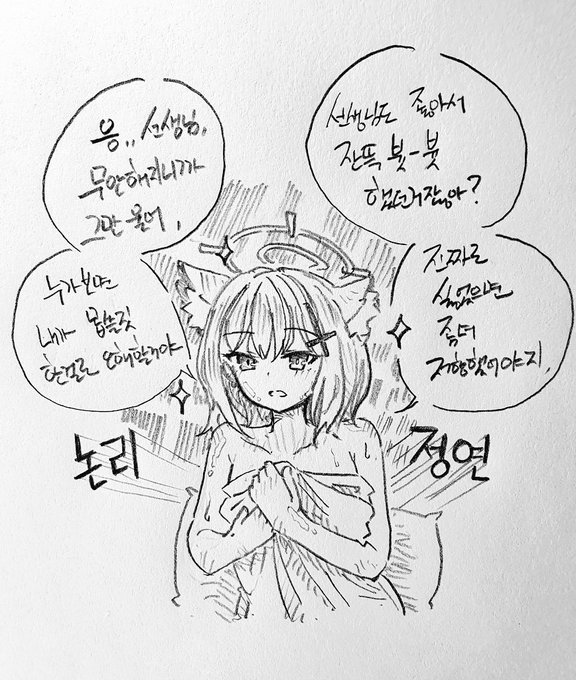 응.. 선생님,
무안해지니까
그만 울어,
누가보면
내가 몹쓸짓
한걸로 오해할거야
선생님도 좋아서
잔뜩 븃-븃
했던거잖아?
진짜로
싫었으면
좀더
저항했어야지,
논리
정연